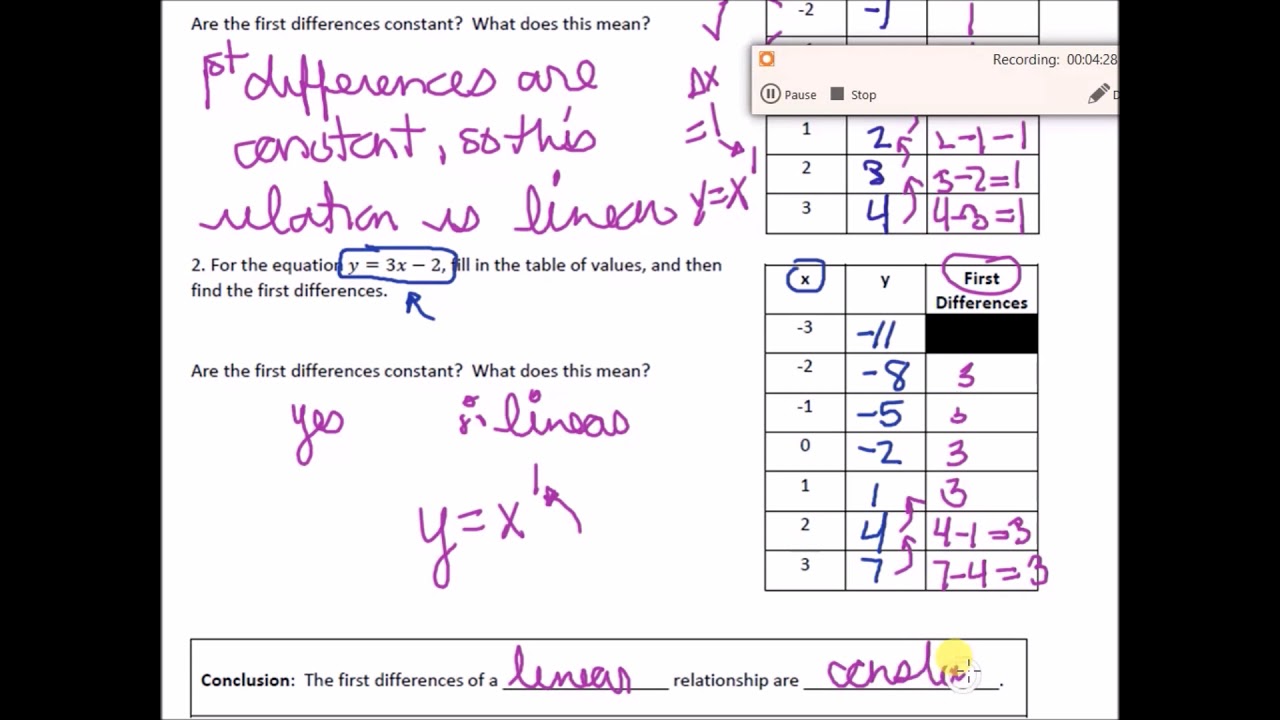 Are the first differences constant? What does this mean?
1st differences are
constant, so this
relation is linear
√
Δx
=1
y=x1
-2 -1 1
Recording: 00:04:28
Pause Stop
1 2 2-1-1
2 3 3-2=1
3 4 4-3=1
2. For the equation y = 3x − 2, fill in the table of values, and then
find the first differences.
R
Are the first differences constant? What does this mean?
yes ∴ linear
y=x1
x y First
Differences
-3 -11
-2 -8 3
-1 -5 3
0 -2 3
1 1 3
2 4 4-1=3
3 7 7-4=3
Conclusion: The first differences of a linear relationship are consta .